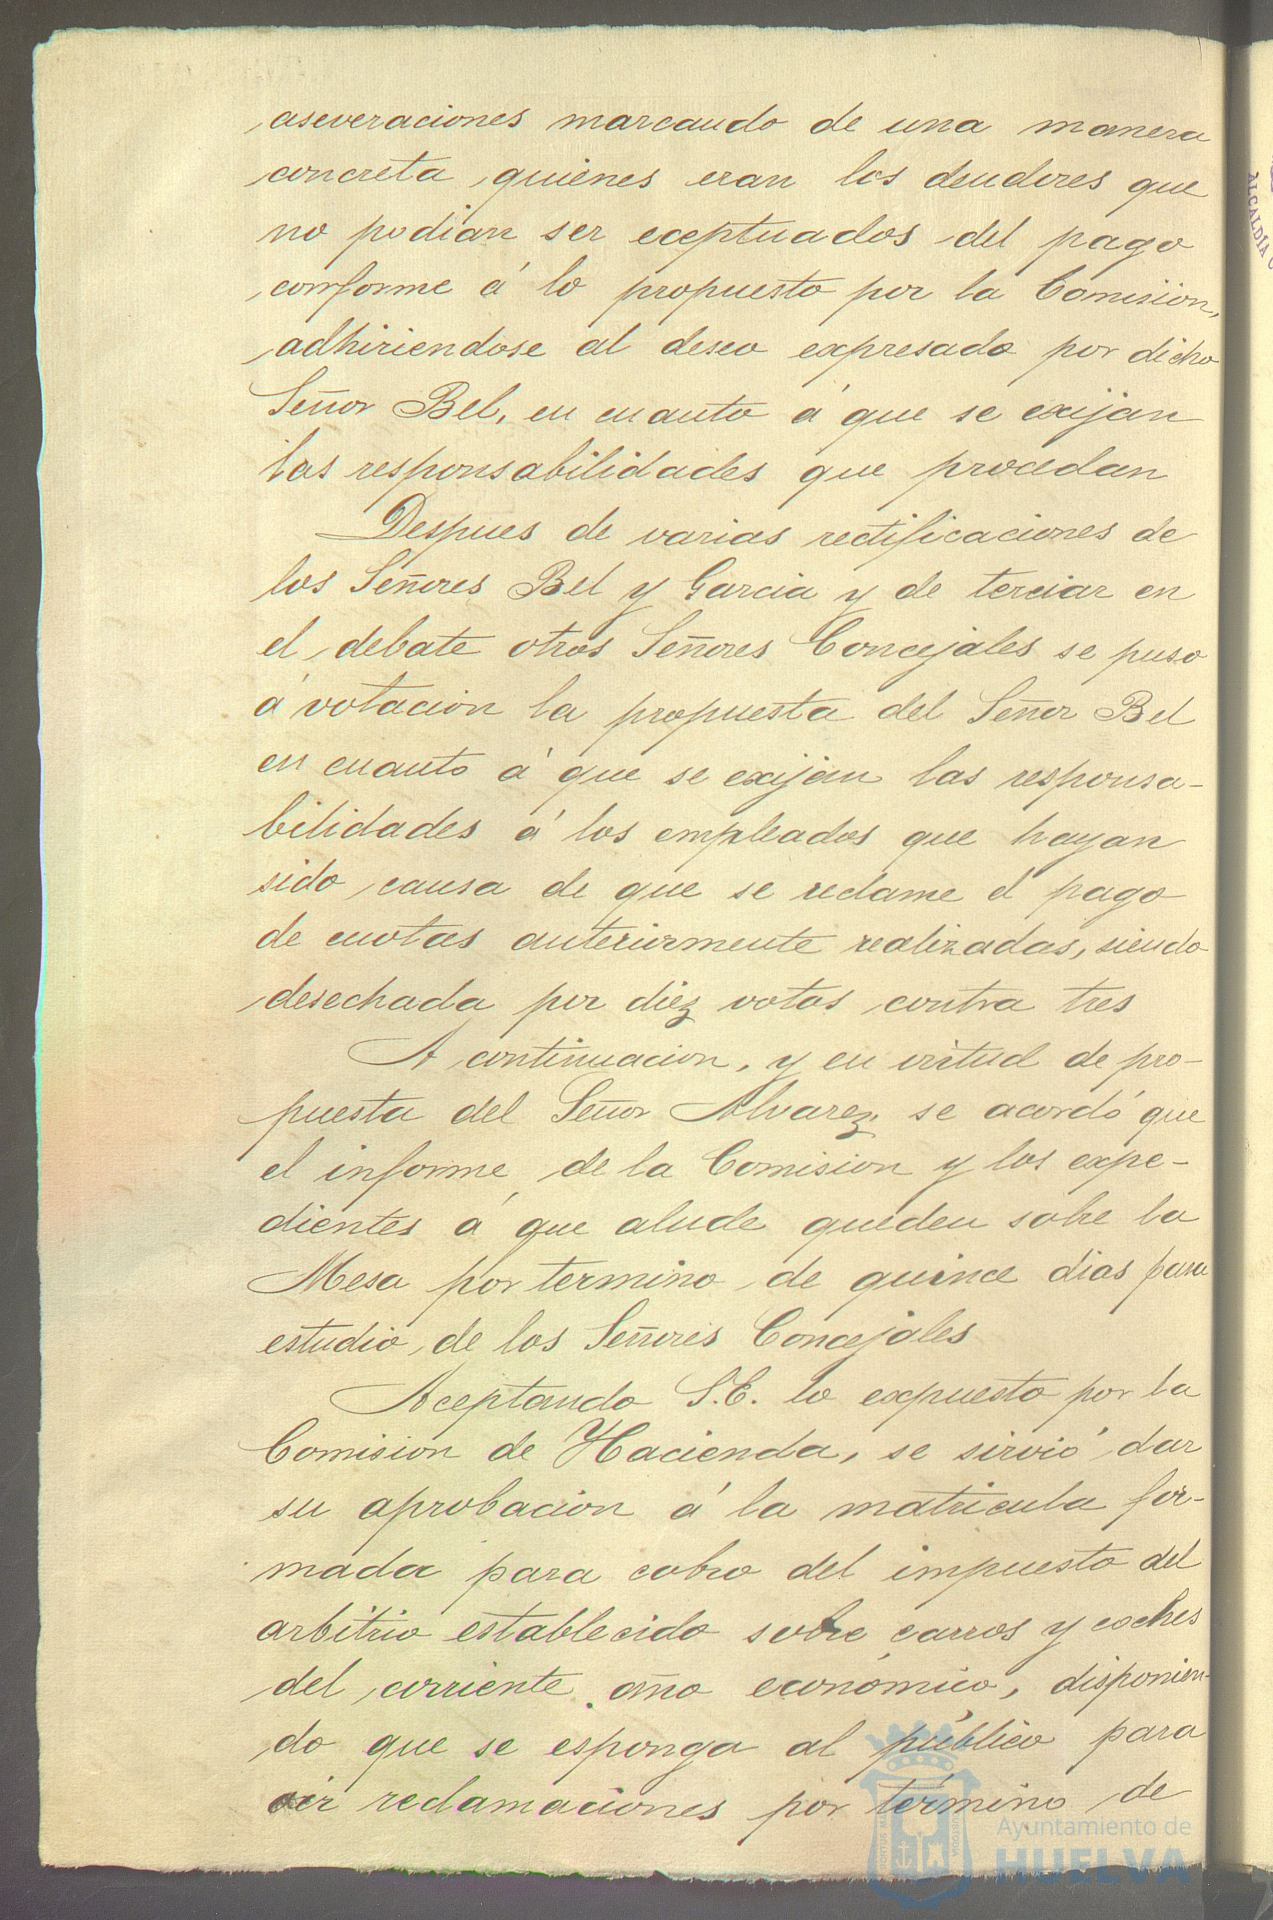 aseveraciones marcando de una manera
concreta quienes eran los deudores que
no podian ser eceptuados del pago
conforme á lo propuesto por la Comision,
adhiriendose al deseo expresado por dicho
Señor Bel, en cuanto á que se exijan
las responsabilidades que procedan
Despues de varias rectificaciones de
los Señores Bel y Garcia y de terciar en
el debate otros Señores Concejales se puso
á votacion la propuesta del Señor Bel
en cuanto á que se exijan las responsa-
bilidades á los empleados que hayan
sido causa de que se reclame el pago
de cuotas anteriormente realizadas, siendo
desechada por diez votos contra tres
A continuacion, y en virtud de pro-
puesta del Señor Alvarez, se acordó que
el informe de la Comision y los expe-
dientes á que alude queden sobre la
Mesa por termino de quince dias para
estudio de los Señores Concejales
Aceptando S.E. lo expuesto por la
Comision de Hacienda, se sirvió dar
su aprobacion á la matricula for-
mada para cobro del impuesto del
arbitrio establecido sobre carros y coches
del corriente año económico, disponien-
do que se esponga al público para
oir reclamaciones por término de
ALCALDIA
Ayuntamiento de
HUELVA